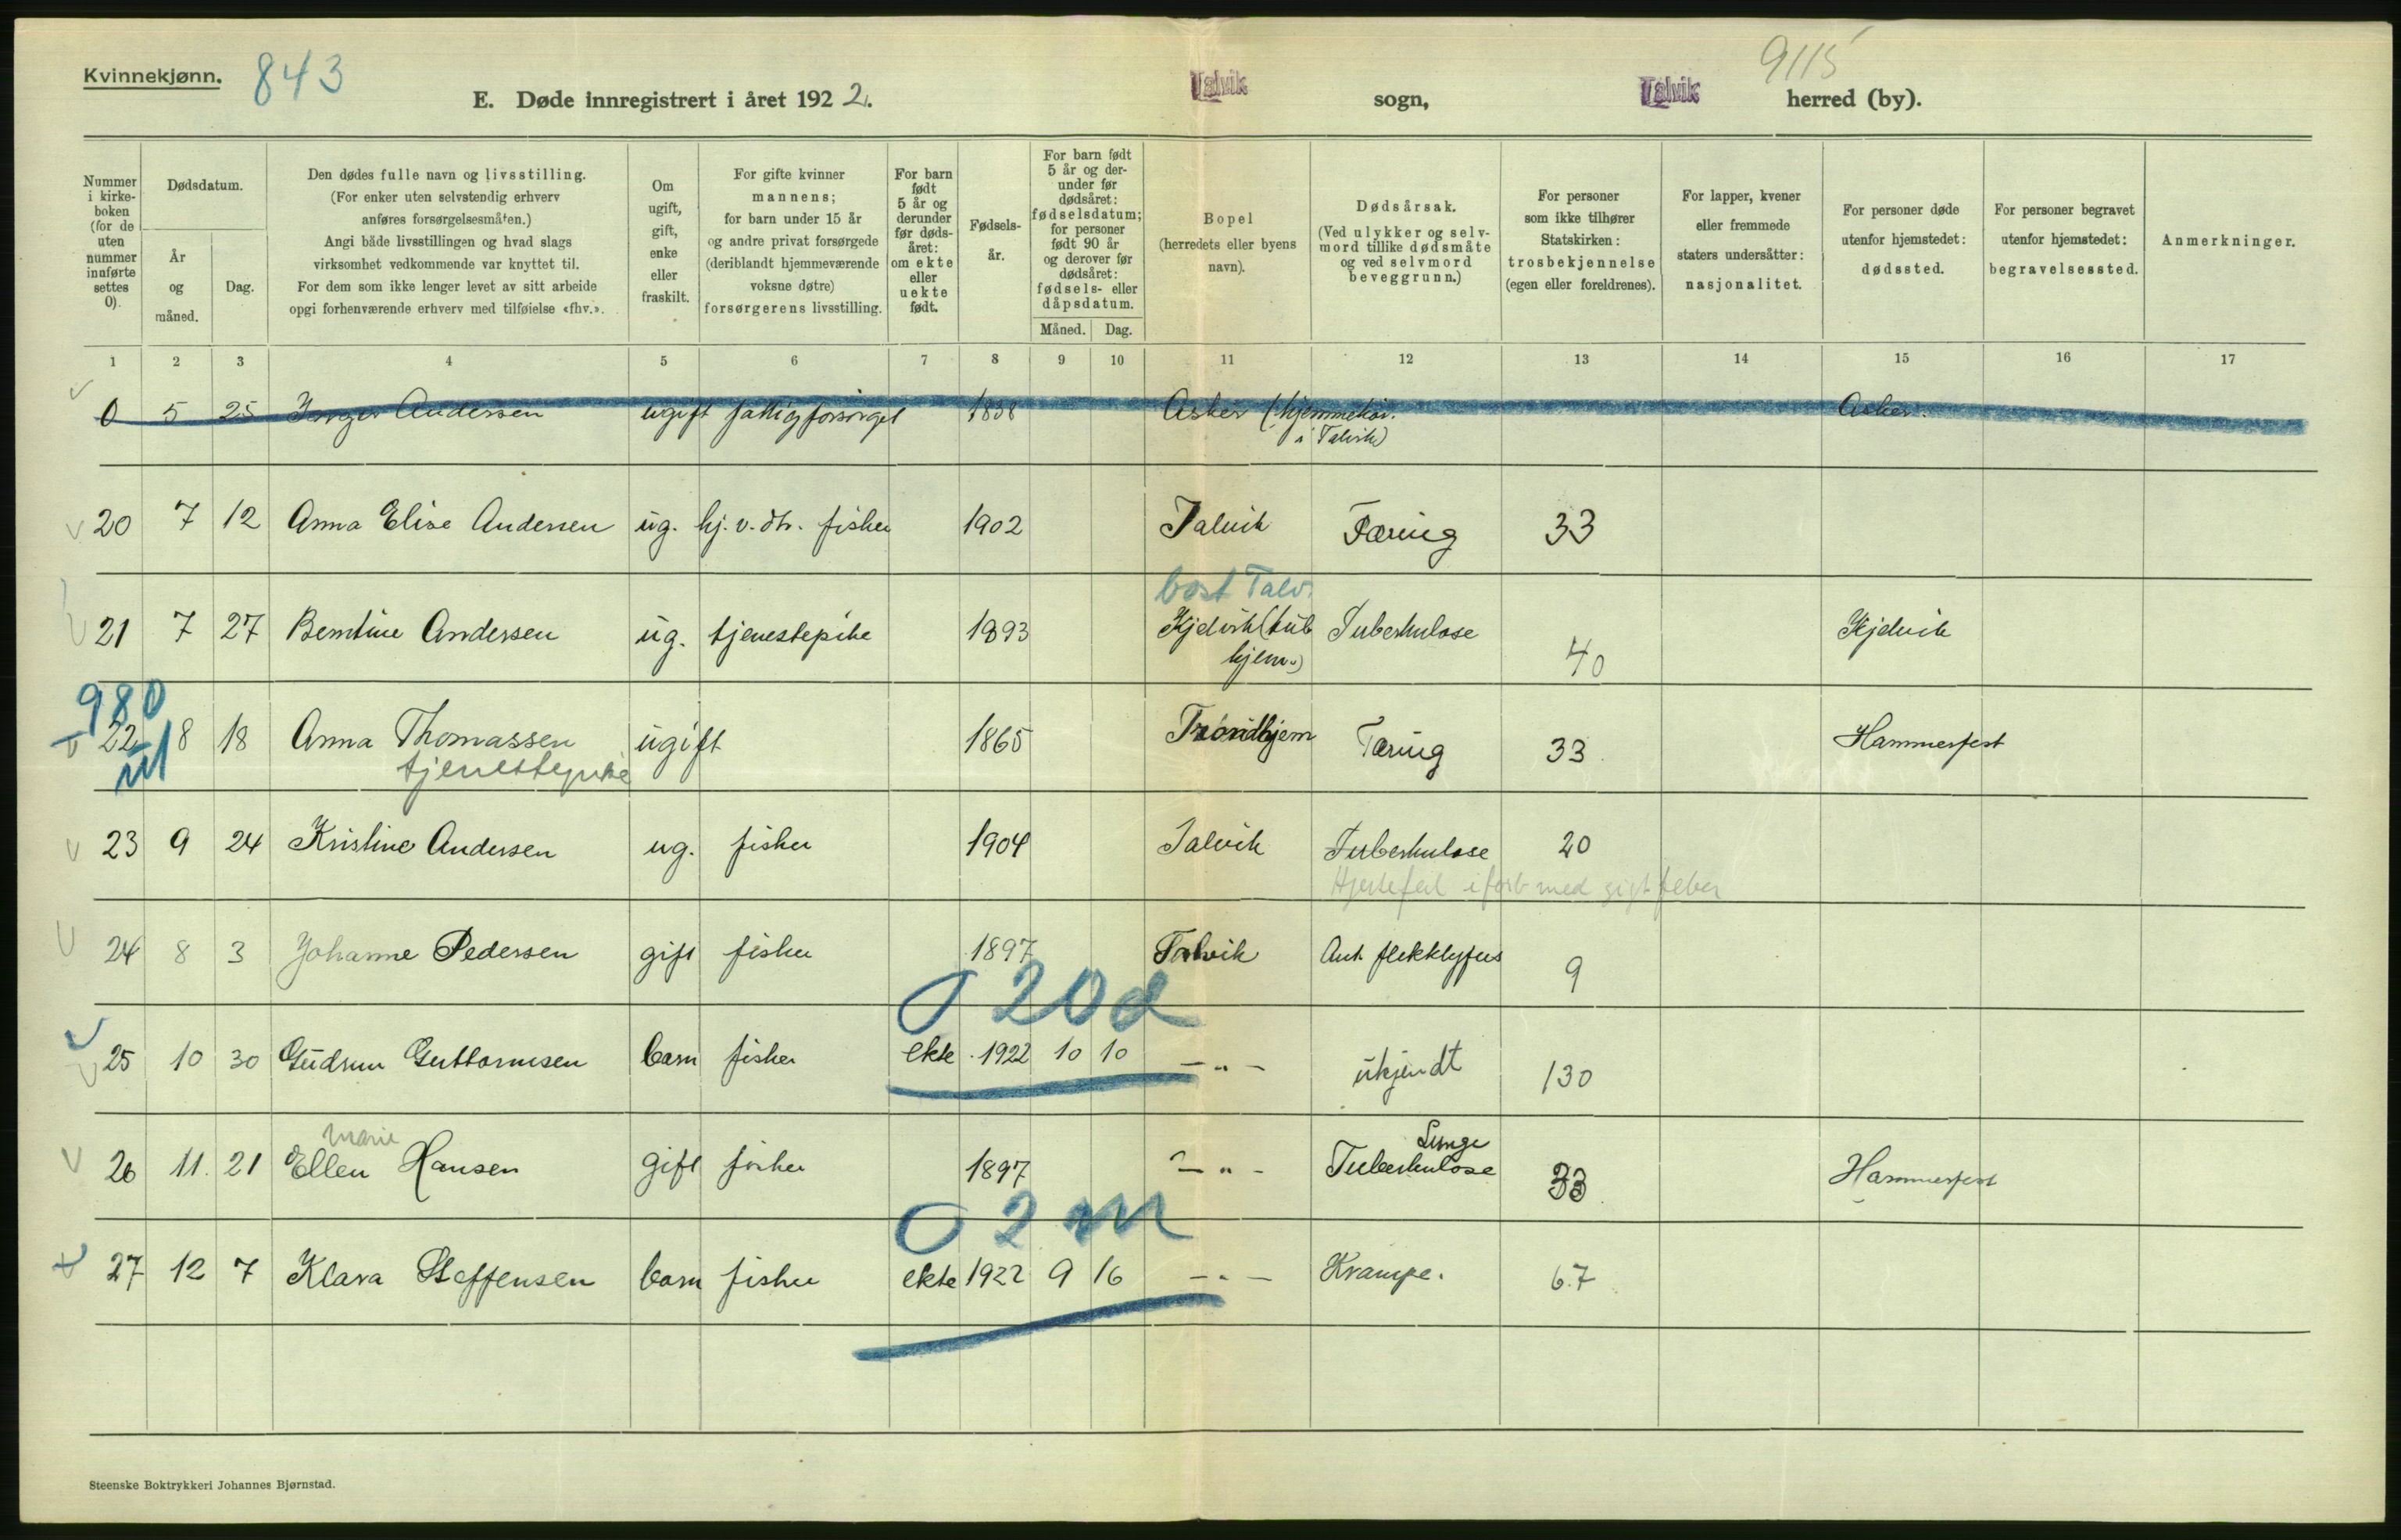 Kvinnekjønn.
843
E. Døde innregistrert i året 1922.
Talvik
sogn,
Talvik
9115
herred (by).
Nummer i kirkeboken (for de uten nummer innførte settes 0).
Dødsdatum.
År og måned.
Dag.
Den dødes fulle navn og livsstilling.
(For enker uten selvstendig erhverv
anføres forsørgelsesmåten.)
Angi både livsstillingen og hvad slags
virksomhet vedkommende var knyttet til.
For dem som ikke lenger levet av sitt arbeide
opgi forhenværende erhverv med tilføielse «fhv.».
Om ugift, gift, enke eller fraskilt.
For gifte kvinner
mannens;
for barn under 15 år
og andre privat forsørgede
(deriblandt hjemmeværende
voksne døtre)
forsørgerens livsstilling.
For barn født 5 år og derunder før dødsåret: om ekte eller uekte født.
Fødselsår.
For barn født 5 år og derunder før dødsåret: fødselsdatum; for personer født 90 år og derover før dødsåret: fødsels- eller dåpsdatum.
Måned. Dag.
Bopel
(herredets eller byens
navn).
Dødsårsak.
(Ved ulykker og selvmord tillike dødsmåte og ved selvmord beveggrunn.)
For personer
som ikke tilhører
Statskirken:
trosbekjennelse
(egen eller foreldrenes).
For lapper, kvener
eller fremmede
staters undersåtter:
nasjonalitet.
For personer døde
utenfor hjemstedet:
dødssted.
For personer begravet
utenfor hjemstedet:
begravelsessted.
Anmerkninger.
1 2 3 4 5 6 7 8 9 10 11 12 13 14 15 16 17
0 5 25 Inger Andersen ugift fattigforsørget 1838 Asker (hjemmehør. Asker.
i Talvik)
20 7 12 Anna Elise Andersen ug. hj.v.dtr. fisker 1902 Talvik Tæring 33
bost Talv.
21 7 27 Berntine Andersen ug. tjenestepike 1893 Kjelvik (tub Tuberkulose 40 Kjelvik
hjem.)
980
22 8 18 Anna Thomassen ugift 1865 Trondhjem Tæring 33 Hammerfest
tjenestepike
23 9 24 Kristine Andersen ug. fisker 1904 Talvik Tuberkulose 20
Hjertefeil i forb med gigtfeber
24 8 3 Johanne Pedersen gift fisker 1897 Talvik Ant. flekktyfus 9
0 20 d
25 10 30 Gudrun Guttormsen barn fisker ekte 1922 10 10 — „ — ukjendt 130
Marie
Lunge
26 11. 21 Ellen Hansen gift fisker 1897 — „ — Tuberkulose 33 Hammerfest
0 2 m
27 12 7 Klara Steffensen barn fisker ekte 1922 9 16 — „ — Krampe. 67
Steenske Boktrykkeri Johannes Bjørnstad.